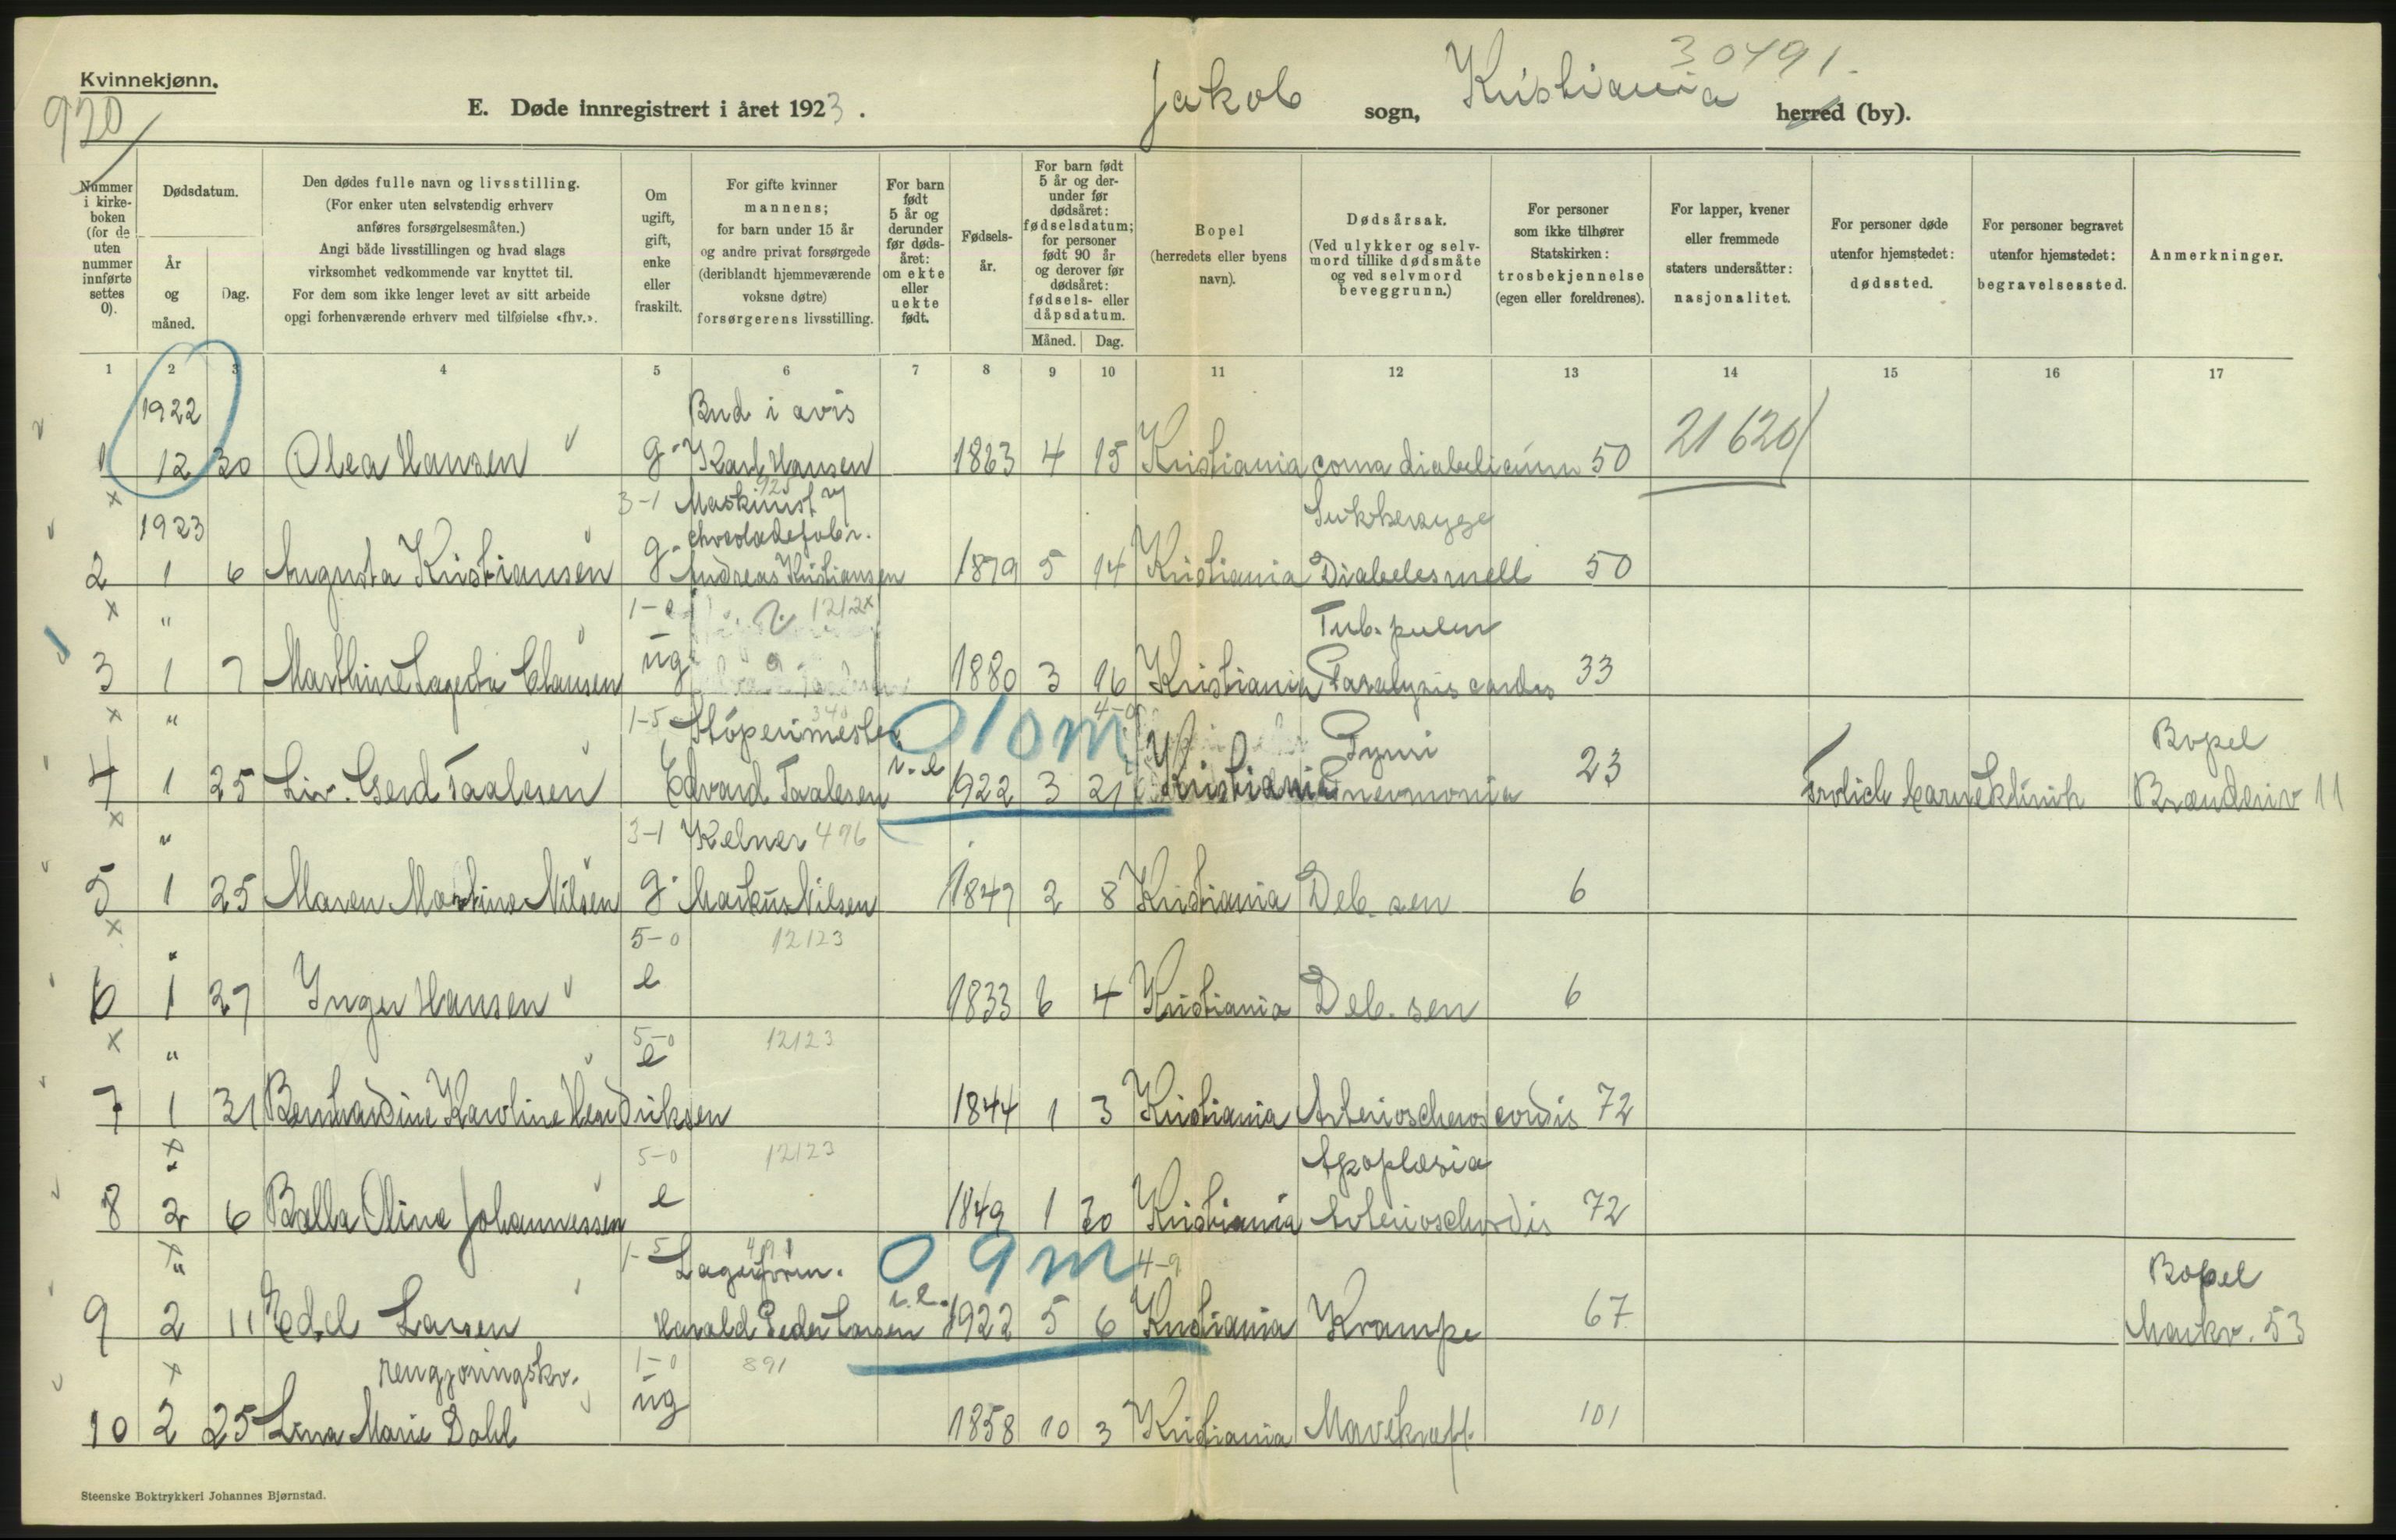 30491.
Kvinnekjønn.
920
E. Døde innregistrert i året 1923. Jakob sogn, Kristiania herred (by).
Nummer i kirkeboken (for de uten nummer innførte settes 0).
Dødsdatum.
År og måned.
Dag.
Den dødes fulle navn og livsstilling.
(For enker uten selvstendig erhverv
anføres forsørgelsesmåten.)
Angi både livsstillingen og hvad slags
virksomhet vedkommende var knyttet til.
For dem som ikke lenger levet av sitt arbeide
opgi forhenværende erhverv med tilføielse «fhv.».
Om ugift, gift, enke eller fraskilt.
For gifte kvinner
mannens;
for barn under 15 år
og andre privat forsørgede
(deriblandt hjemmeværende
voksne døtre)
forsørgerens livsstilling.
For barn født 5 år og derunder før dødsåret: om ekte eller uekte født.
Fødselsår.
For barn født 5 år og derunder før dødsåret: fødselsdatum; for personer født 90 år og derover før dødsåret: fødsels- eller dåpsdatum.
Måned. Dag.
Bopel
(herredets eller byens navn).
Dødsårsak.
(Ved ulykker og selvmord tillike dødsmåte og ved selvmord beveggrunn.)
For personer
som ikke tilhører
Statskirken:
trosbekjennelse
(egen eller foreldrenes).
For lapper, kvener
eller fremmede
staters undersåtter:
nasjonalitet.
For personer døde
utenfor hjemstedet:
dødssted.
For personer begravet
utenfor hjemstedet:
begravelsessted.
Anmerkninger.
1 2 3 4 5 6 7 8 9 10 11 12 13 14 15 16 17
1922 Bud i avis
1 12 30 Olea Hansen g. Karl Hansen 1863 4 15 Kristiania coma diabeticum 50 21620
3-1 Maskinist
1923 chocoladefabr. Sukkersyge
2 1 6 Augusta Kristiansen g. Andreas Kristiansen 1879 5 14 Kristiania Diabetes mell 50
" 1-0 1212 Tub. pulm
3 1 7 Marthine Clausen ug 1880 3 16 Kristiania Paralysis cordis 33
" 1-5 Støperimester 340 0 10 m 4-9 Bopel
4 1 25 Liv. Gerd Taalesen Edvard Taalesen 1922 3 21 Kristiania Pnevmonia 23 Frølich barneklinik Brænderiv 11
" 3-1 Kelner 496
5 1 25 Maren Martine Nilsen g. Markus Nilsen 1847 2 8 Kristiania Deb. sen 6
" 5-0 12123
6 1 27 Inger Hansen e 1833 6 4 Kristiania Deb. sen 6
" 5-0 12123
7 1 31 Bernhardine Karoline Hendriksen e 1844 1 3 Kristiania Arterioscleros cordis 72
" 5-0 12123 Apoplexia
8 2 6 Bolla Oline Johannessen e 1849 1 30 Kristiania 72
" 1-5 Lagerform. 0 9 m 4-9 Bopel
9 2 11 Edel Larsen Harald Peder Larsen 1922 5 6 Kristiania Krampe 67 Markv. 53
rengjøringskv. 1-0 891
10 2 25 Lina Marie Dahl ug 1858 10 3 Kristiania Mavekræft. 101
Steenske Boktrykkeri Johannes Bjørnstad.